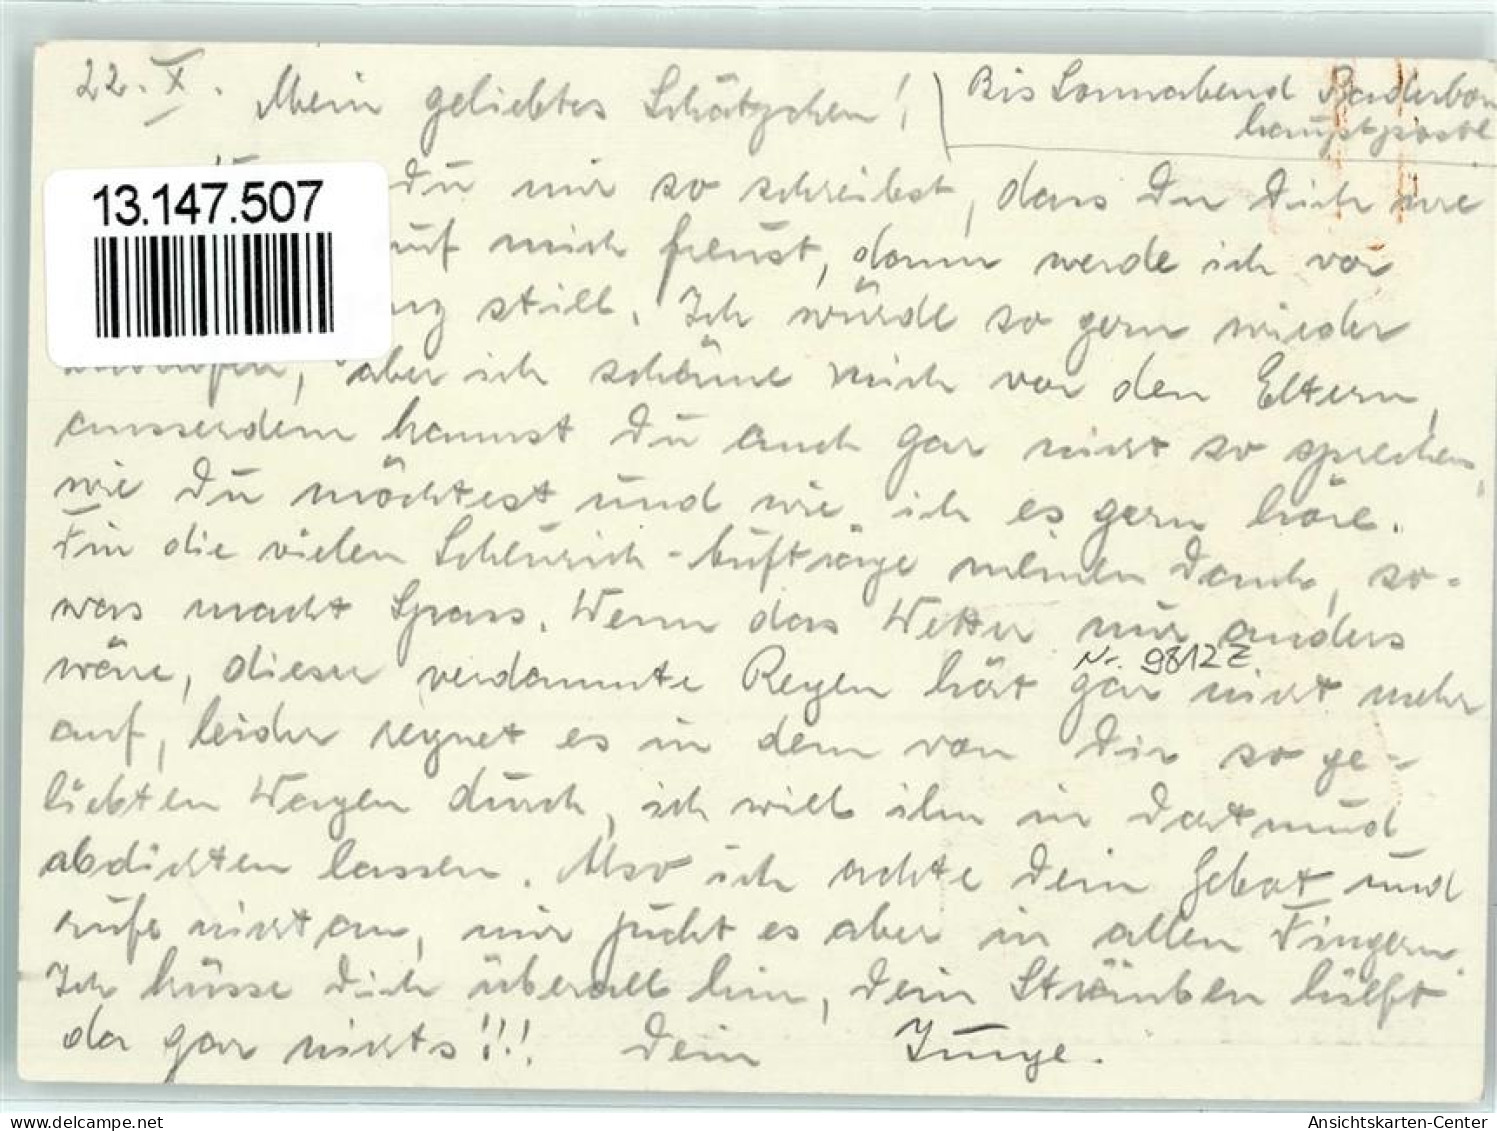 22. X. Mein geliebtes Schätzchen! Bis Sonnabend Paderborn
hauptpostl
13.147.507
Du mir so schreibst, dass Du Dich wie
auf mich freust, dann werde ich vor
still. Ich würde so gern wieder
aber ich schäme mich vor den Eltern,
ausserdem kannst Du auch gar nicht so sprechen,
wie Du möchtest und wie ich es gern höre.
Für die vielen Scheurich-Aufträge meinen Dank, so-
was macht Spass. Wenn das Wetter nur anders
Nr. 9812 E
wäre, dieser verdammte Regen hört gar nicht mehr
auf, leider regnet es in dem von Dir so ge-
liebten Wagen durch, ich will ihn in Dortmund
abdichten lassen. Also ich achte Dein Gebot und
rufe nicht an, mir juckt es aber in allen Fingern.
Ich küsse Dich überall hin, Dein Sträuben hilft
da gar nichts!!! Dein Junge.
delcampe.net
Ansichtskarten-Center